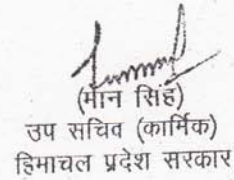 (मान सिंह)
उप सचिव (कार्मिक)
हिमाचल प्रदेश सरकार